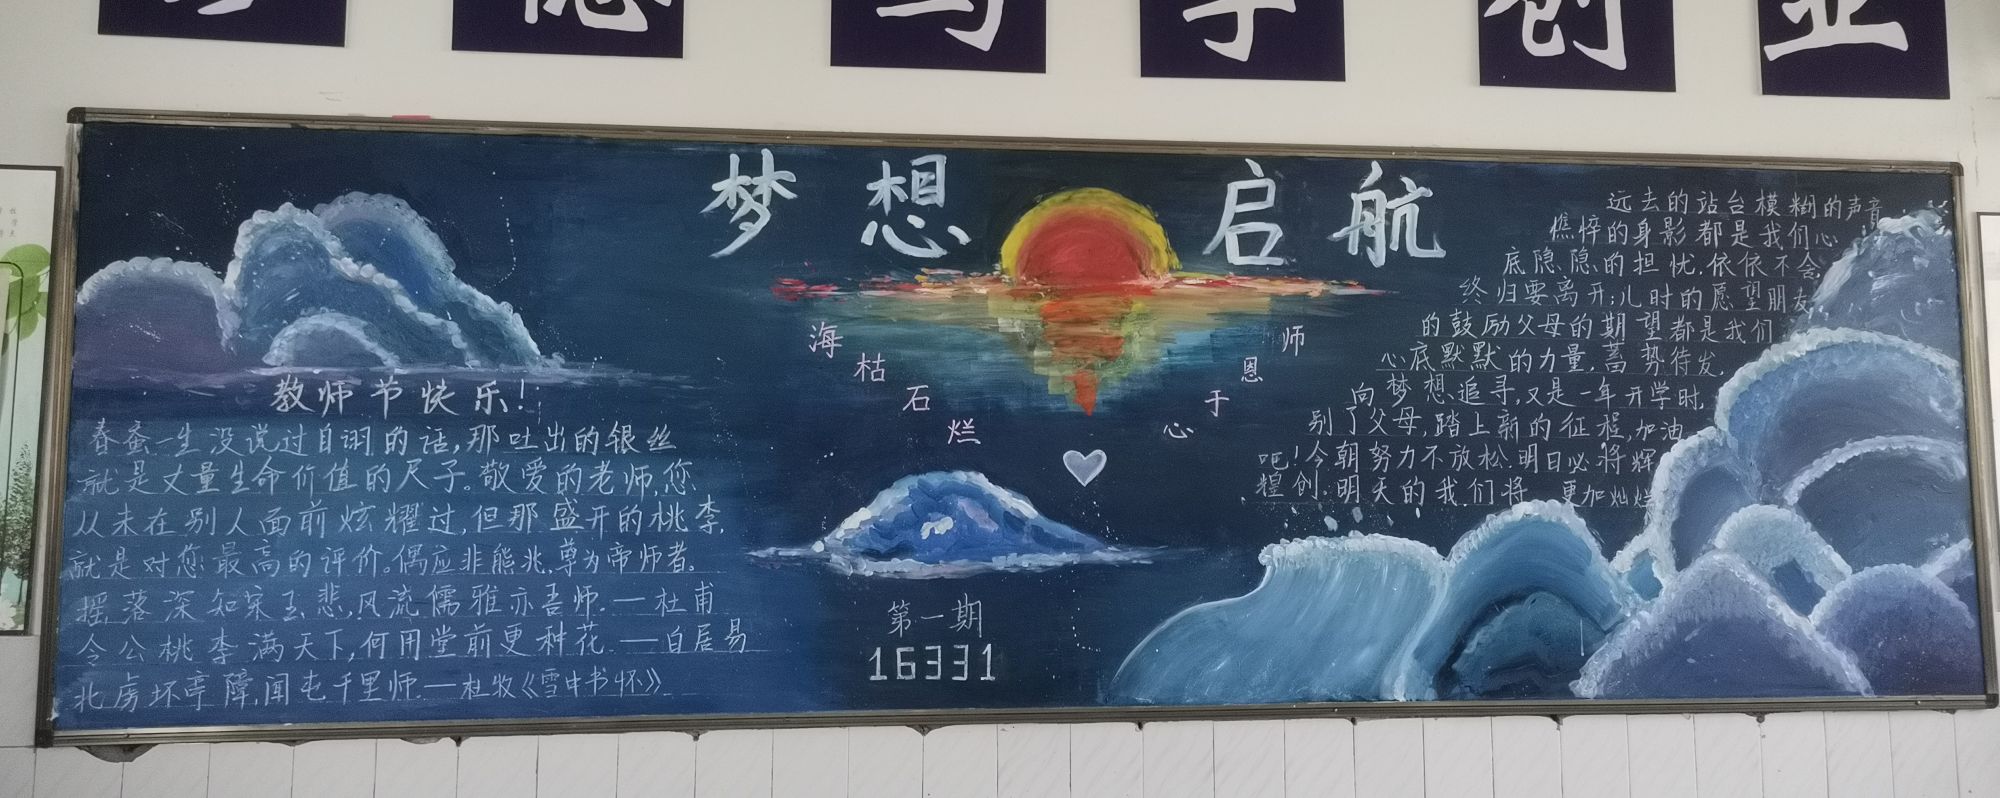 创业
梦想启航
海枯石烂
师恩于心
教师节快乐!
春蚕一生没说过自诩的话,那吐出的银丝
就是丈量生命价值的尺子。敬爱的老师,您
从未在别人面前炫耀过,但那盛开的桃李,
就是对您最高的评价。偶应非熊兆,尊为帝师者。
摇落深知宋玉悲,风流儒雅亦吾师.—杜甫
令公桃李满天下,何用堂前更种花.——白居易
北虏坏亭障,闻屯千里师.—杜牧《雪中书怀》
第一期
16331
远去的站台模糊的声音
憔悴的身影都是我们心
底隐隐的担忧.依依不舍
终归要离开;儿时的愿望朋友
的鼓励父母的期望都是我们
心底默默的力量,蓄势待发,
向梦想追寻,又是一年开学时,
别了父母,踏上新的征程,加油
吧!今朝努力不放松.明日必将辉
煌创.明天的我们将 更加灿烂